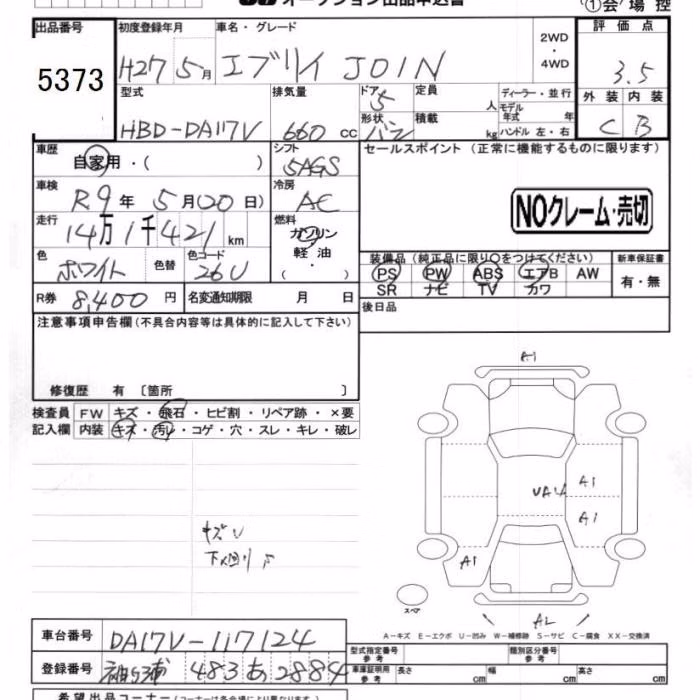 オークション出品申込書 ①会場控
出品番号 5373
初度登録年月 H27年 5月
車名・グレード エブリイ JOIN
2WD・4WD
評価点 3.5
外装 C 内装 B
型式 HBD-DA17V
排気量 660 cc
ドア 5 形状 バン
定員 人
積載 kg
ディーラー・並行
モデル年式 年
ハンドル 左・右
車歴 自家用・( )
シフト 5AGS
セールスポイント (正常に機能するものに限ります)
車検 R9年 5月(20日)
冷房 AC
NOクレーム・売切
走行 14万1千421km
燃料 ガソリン・軽油・( )
色 ホワイト 色替
色コード 26U
装備品 (純正品に限り○をつけてください)
PS PW ABS エアB AW
SR ナビ TV カワ
新車保証書 有・無
R券 8,400円
名変通知期限 月 日
後日品
注意事項申告欄 (不具合内容等は具体的に記入して下さい)
修復歴 有 〔箇所 〕
検査員記入欄
FW キズ・飛石・ヒビ割・リペア跡・×要
内装 キズ・汚れ・コゲ・穴・スレ・キレ・破レ
A1
A1
A1
A1
キズU
スペア
A-キズ E-エクボ U-凹み W-補修跡 S-サビ C-腐食 XX-交換済
車台番号 DA17V-117124
登録番号 袖ヶ浦 483 あ 2884
型式指定番号 参考
類別区分番号 参考
車庫証明用 参考 長さ cm 幅 cm 高さ cm
希望出品コーナー (コーナーは各会場により異なります)